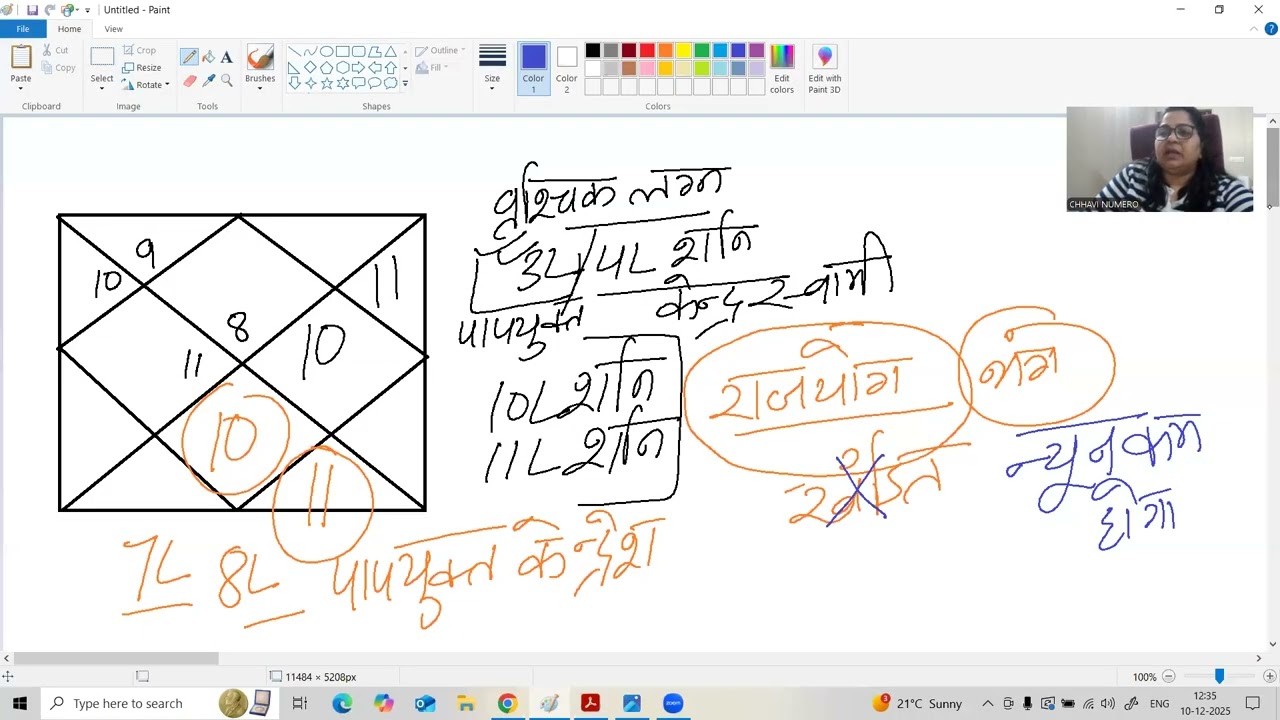 Untitled - Paint
File Home View
Paste Cut Copy Clipboard
Select Crop Resize Rotate Image
Tools
Brushes
Outline Fill Shapes
Size
Color 1 Color 2 Edit colors Colors
Edit with Paint 3D
CHHAVI NUMERO
वृश्चिक लग्न
3L/4L शनि
पापयुक्त केन्द्र स्वामी
10L शनि
11L शनि
राजयोग भंग
खंडित न्यूनकम होगा
9
10
11
8
11
10
10
11
7L 8L पापयुक्त केन्द्रेश
11484 × 5208px
100%
Type here to search
21°C Sunny
ENG
12:35
10-12-2025
3